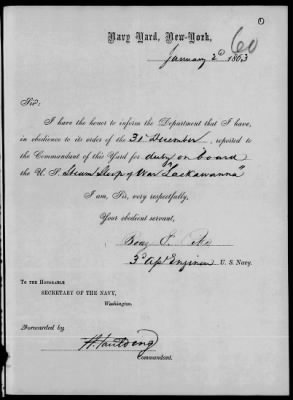 60
Navy Yard, New-York,
January 2d 1863
Sir:
I have the honor to inform the Department that I have,
in obedience to its order of the 31st December, reported to
the Commandant of this Yard for duty on board
the U. S. Steam Sloop of War "Lackawanna"
I am, Sir, very respectfully,
Your obedient servant,
3d Asst Engineer U. S. Navy.
To the Honorable
SECRETARY OF THE NAVY,
Washington.
Forwarded by
H. Paulding
Commandant.